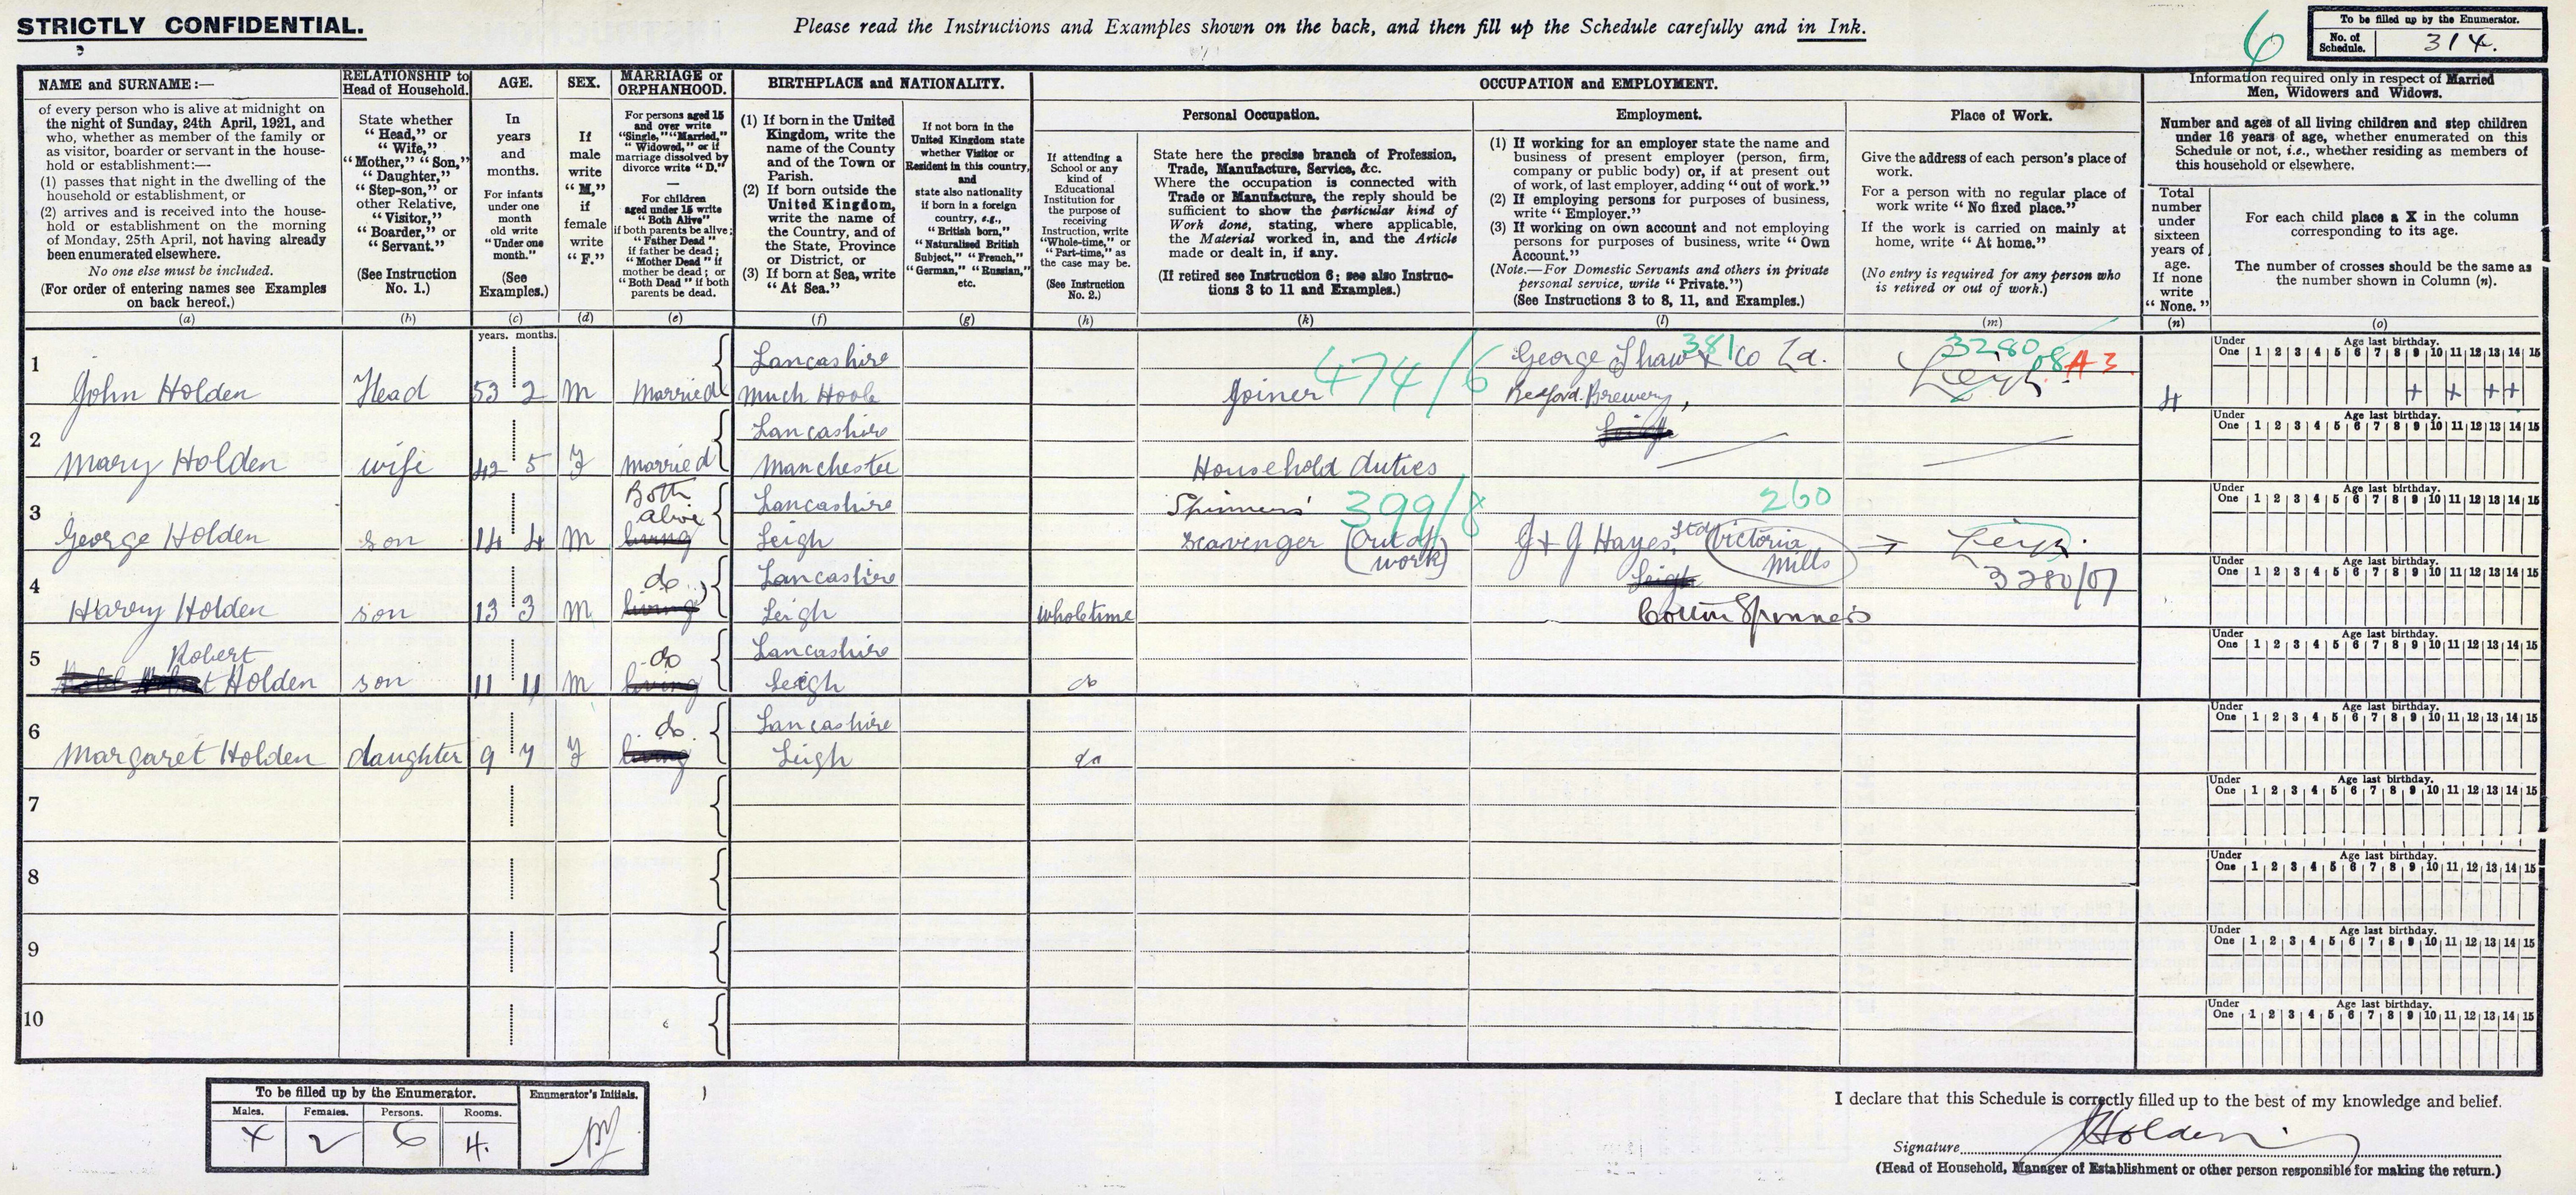 STRICTLY CONFIDENTIAL.
Please read the Instructions and Examples shown on the back, and then fill up the Schedule carefully and in Ink.
6
To be filled up by the Enumerator.
No. of Schedule. 314.
NAME and SURNAME:—
of every person who is alive at midnight on
the night of Sunday, 24th April, 1921, and
who, whether as member of the family or
as visitor, boarder or servant in the house-
hold or establishment:—
(1) passes that night in the dwelling of the
household or establishment, or
(2) arrives and is received into the house-
hold or establishment on the morning
of Monday, 25th April, not having already
been enumerated elsewhere.
No one else must be included.
(For order of entering names see Examples
on back hereof.)
(a)
RELATIONSHIP to
Head of Household.
State whether
"Head," or
"Wife,"
"Mother," "Son,"
"Daughter,"
"Step-son," or
other Relative,
"Visitor,"
"Boarder," or
"Servant."
(See Instruction
No. 1.)
(b)
AGE.
In
years
and
months.
For infants
under one
month
old write
"Under one
month."
(See
Examples.)
(c)
years. months.
SEX.
If
male
write
"M,"
if
female
write
"F."
(d)
MARRIAGE or
ORPHANHOOD.
For persons aged 15
and over write
"Single," "Married,"
"Widowed," or if
marriage dissolved by
divorce write "D."
For children
aged under 15 write
"Both Alive"
if both parents be alive;
"Father Dead"
if father be dead;
"Mother Dead" if
mother be dead; or
"Both Dead" if both
parents be dead.
(e)
BIRTHPLACE and NATIONALITY.
(1) If born in the United
Kingdom, write the
name of the County
and of the Town or
Parish.
(2) If born outside the
United Kingdom,
write the name of
the Country, and of
the State, Province
or District, or
(3) If born at Sea, write
"At Sea."
(f)
If not born in the
United Kingdom state
whether Visitor or
Resident in this country,
and
state also nationality
if born in a foreign
country, e.g.,
"British born,"
"Naturalised British
Subject," "French,"
"German," "Russian,"
etc.
(g)
OCCUPATION and EMPLOYMENT.
Personal Occupation.
If attending a
School or any
kind of
Educational
Institution for
the purpose of
receiving
Instruction, write
"Whole-time," or
"Part-time," as
the case may be.
(See Instruction
No. 2.)
(h)
State here the precise branch of Profession,
Trade, Manufacture, Service, &c.
Where the occupation is connected with
Trade or Manufacture, the reply should be
sufficient to show the particular kind of
Work done, stating, where applicable,
the Material worked in, and the Article
made or dealt in, if any.
(If retired see Instruction 6; see also Instruc-
tions 3 to 11 and Examples.)
(k)
Employment.
(1) If working for an employer state the name and
business of present employer (person, firm,
company or public body) or, if at present out
of work, of last employer, adding "out of work."
(2) If employing persons for purposes of business,
write "Employer."
(3) If working on own account and not employing
persons for purposes of business, write "Own
Account."
(Note.—For Domestic Servants and others in private
personal service, write "Private.")
(See Instructions 3 to 8, 11, and Examples.)
(l)
Place of Work.
Give the address of each person's place of
work.
For a person with no regular place of
work write "No fixed place."
If the work is carried on mainly at
home, write "At home."
(No entry is required for any person who
is retired or out of work.)
(m)
Information required only in respect of Married
Men, Widowers and Widows.
Number and ages of all living children and step children
under 16 years of age, whether enumerated on this
Schedule or not, i.e., whether residing as members of
this household or elsewhere.
Total
number
under
sixteen
years of
age.
If none
write
"None."
(n)
For each child place a X in the column
corresponding to its age.
The number of crosses should be the same as
the number shown in Column (n).
(o)
1
Lancashire 474/6 George Shaw & Co Ld. 381 3280 08 A 3.
John Holden Head 53 2 M Married Much Hoole Joiner Bedford Brewery, Leigh. 4 + + + +
Under One Age last birthday. 1 2 3 4 5 6 7 8 9 10 11 12 13 14 15
2
Lancashire Leigh
Mary Holden wife 42 5 F Married Manchester Household duties
Under One Age last birthday. 1 2 3 4 5 6 7 8 9 10 11 12 13 14 15
3
Both alive Lancashire Spinners' 399/8 260
George Holden son 14 4 M living Leigh Scavenger (Out of work) J & J Hayes, Ltd Victoria Mills → Leigh.
Under One Age last birthday. 1 2 3 4 5 6 7 8 9 10 11 12 13 14 15
4
do Lancashire Leigh 3280/07
Harry Holden son 13 3 M living Leigh wholetime Cotton Spinners
Under One Age last birthday. 1 2 3 4 5 6 7 8 9 10 11 12 13 14 15
5
Robert do Lancashire
Holden son 11 4 M living Leigh do
Under One Age last birthday. 1 2 3 4 5 6 7 8 9 10 11 12 13 14 15
6
do Lancashire
Margaret Holden daughter 9 7 F living Leigh do
Under One Age last birthday. 1 2 3 4 5 6 7 8 9 10 11 12 13 14 15
7
Under One Age last birthday. 1 2 3 4 5 6 7 8 9 10 11 12 13 14 15
8
Under One Age last birthday. 1 2 3 4 5 6 7 8 9 10 11 12 13 14 15
9
Under One Age last birthday. 1 2 3 4 5 6 7 8 9 10 11 12 13 14 15
10
Under One Age last birthday. 1 2 3 4 5 6 7 8 9 10 11 12 13 14 15
To be filled up by the Enumerator.
Males. Females. Persons. Rooms.
4 2 6 4.
Enumerator's Initials.
I declare that this Schedule is correctly filled up to the best of my knowledge and belief.
Signature J Holden
(Head of Household, Manager of Establishment or other person responsible for making the return.)